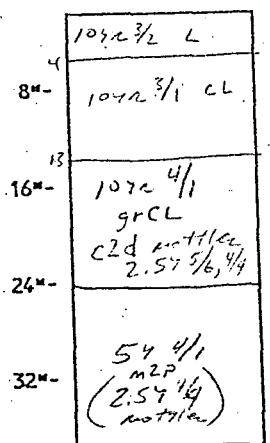 10YR 3/2 L
4
8"-
10YR 3/1 CL
13
16"-
10YR 4/1
grCL
c2d mottles
2.5Y 5/6, 4/4
24"-
5Y 4/1
m2P
32"-
(2.5Y 4/4
mottles)